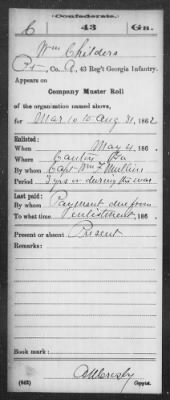 Confederate.
C 43 Ga.
Wm Childers
Pvt, Co. A, 43 Reg't Georgia Infantry.
Appears on
Company Muster Roll
of the organization named above,
for Mar 10 to Aug 31, 1862
Enlisted:
When May 4, 186 .
Where Canton Ga
By whom Capt Wm F Mullins
Period 3 yrs or during the war
Last paid:
By whom Payment due from
To what time enlistment, 186 .
Present or absent Present
Remarks:
Book mark:
(642) Copyist.